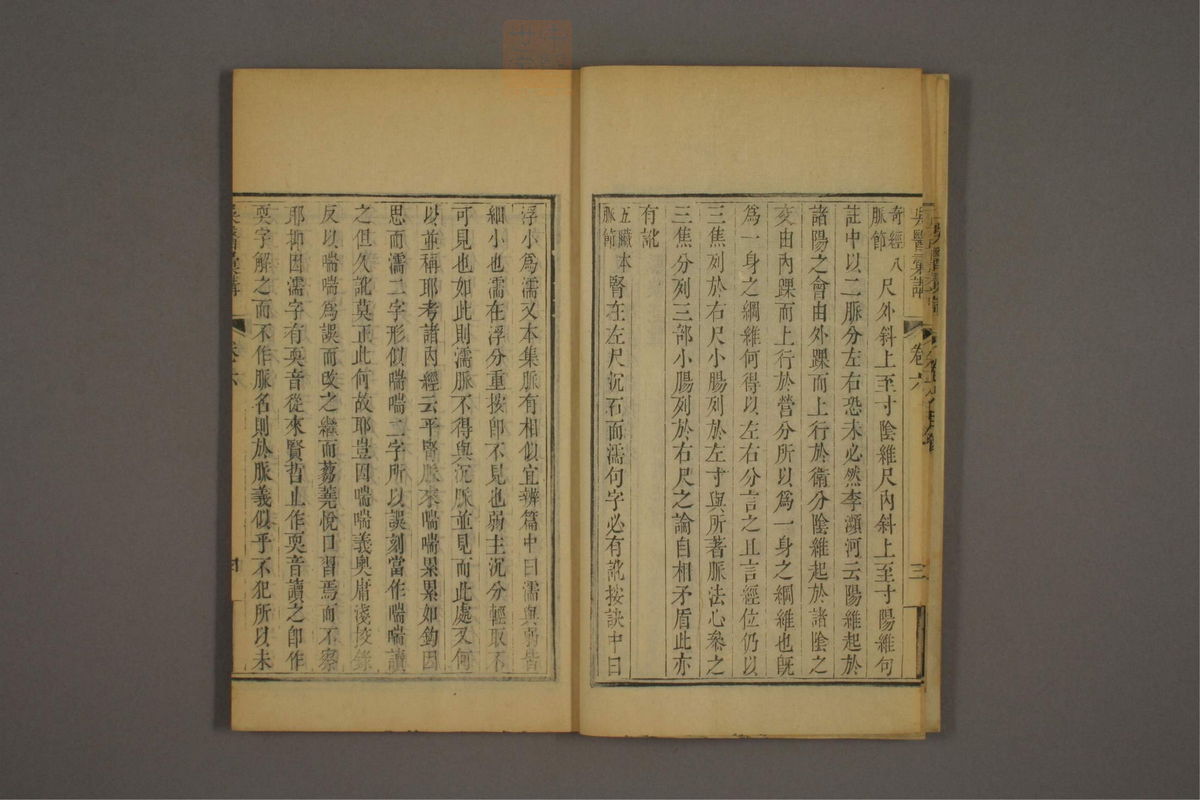 吳醫彙講 卷六 三
奇經八脈節 尺外斜上至寸陰維尺內斜上至寸陽維句
註中以二脈分左右恐未必然李瀕河云陽維起於
諸陽之會由外踝而上行於衛分陰維起於諸陰之
交由內踝而上行於營分所以為一身之綱維也既
為一身之綱維何得以左右分言之且言經位仍以
三焦列於右尺小腸列於左寸與所著脈法心叅之
三焦分列三部小腸列於右尺之論自相矛盾此亦
有訛
五臟本脈節 腎在左尺沉石而濡句字必有訛按訣中曰
浮小為濡又本集脈有相似宜辨篇中曰濡與弱皆
細小也濡在浮分重按卽不見也弱主沉分輕取不
可見也如此則濡脈不得與沉脈並見而此處又何
以並稱耶考諸內經云平腎脈來喘喘累累如鉤因
思而濡二字形似喘喘二字所以誤刻當作喘喘讀
之但久訛莫正此何故耶豈因喘喘義奧庸淺挍錄
反以喘喘為誤而改之繼而蒭蕘悅口習焉而不察
耶抑因濡字有耎音從來賢哲止作耎音讀之卽作
耎字解之而不作脈名則於脈義似乎不犯所以未
吳醫彙講 卷六